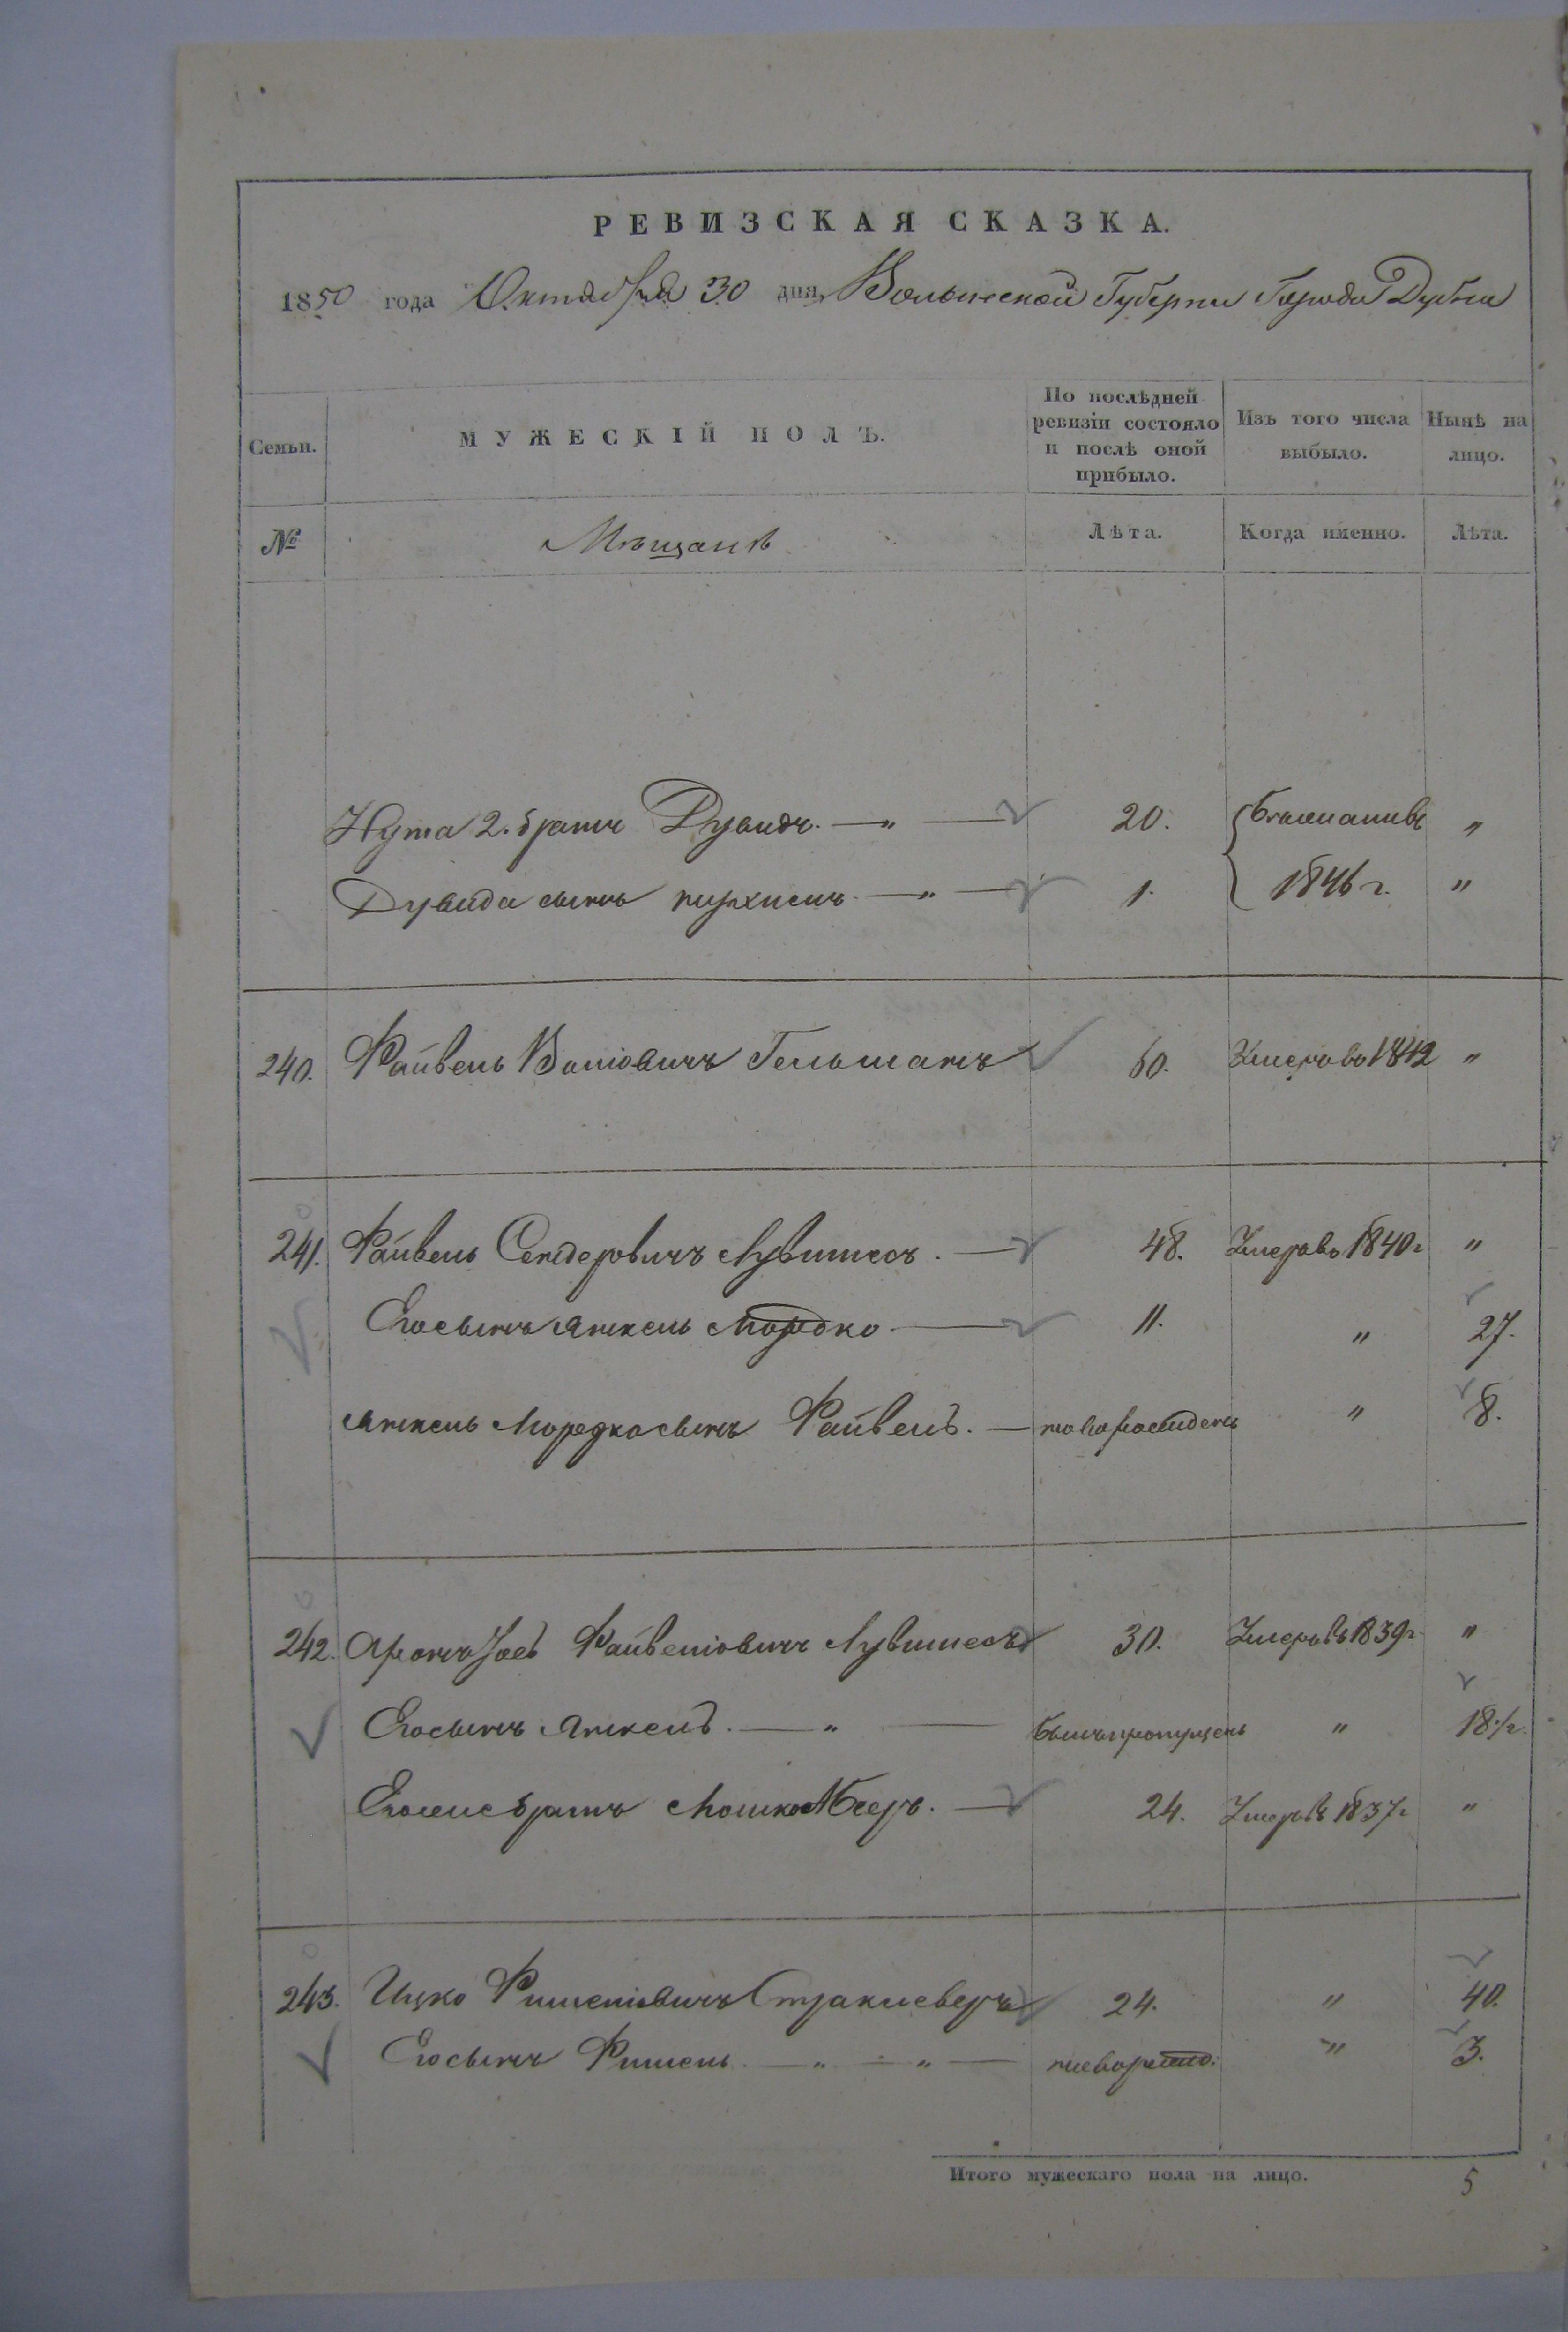 РЕВИЗСКАЯ СКАЗКА.
1850 года Октября 30 дня Волынской Губерни Города Дубна
Семьи. МУЖЕСКІЙ ПОЛЪ. По послѣдней ревизіи состояло и послѣ оной прибыло. Изъ того числа выбыло. Нынѣ на лицо.
№ Мѣщанъ Лѣта. Когда именно. Лѣта.
Нута 2. братъ Дувидъ. — „ — 20. „
Дувида сынъ — „ — 1. 1846 г. „
240. Файвель Волiовичъ Гельманъ 60. Умеръ во 1842 „
241. Файвель Сендеровичъ Лувишесъ. — 48. Умеръ въ 1840 г „
Его сынъ Янкель Мордко — 11. „ 27.
Янкель Мордка сынъ Файвель. — новорожденъ „ 8.
242. Аронъ Зось Файвелiовичъ Лувишесъ 30. Умеръ въ 1839 г. „
Его сынъ Янкель. — „ — былъ пропущенъ „ 18 1/2.
Его же братъ Мошко Беръ. — 24. Умеръ въ 1837 г „
243. Ицко Фишелiовичъ 24. „ 40.
Его сынъ Фишель — „ — „ — новорожд: „ 3.
Итого мужескаго пола на лицо. 5